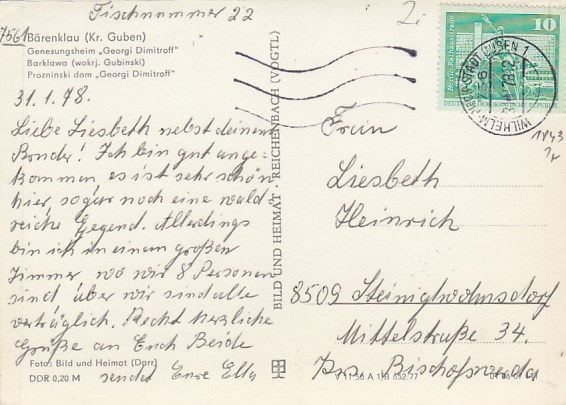 Tischnummer 22
7561 Bärenklau (Kr. Guben)
Genesungsheim „Georgi Dimitroff"
Barklawa (wokrj. Gubinski)
Prozninski dom „Georgi Dimitroff"
31.1.78.
Liebe Liesbeth nebst deinem
Bruder! Ich bin gut ange-
kommen es ist sehr schön
hier, sogar noch eine wald-
reiche Gegend. Allerdings
bin ich in einem großen
Zimmer wo wir 8 Personen
sind, aber wir sind alle
verträglich. Recht herzliche
Grüße an Euch Beide
sendet Eure Ella
Foto: Bild und Heimat (Darr)
DDR 0,20 M
BILD UND HEIMAT · REICHENBACH (VOGTL)
V 11 50 A 1/B 352/77
10
WILHELM-PIECK-STADT GUBEN 1
Frau
Liesbeth
Heinrich
8509 Steinigtwolmsdorf
Mittelstraße 34.
Krs. Bischofswerda